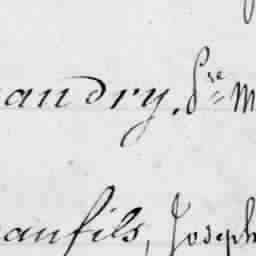 andry. Pre M
anfils, Joseph